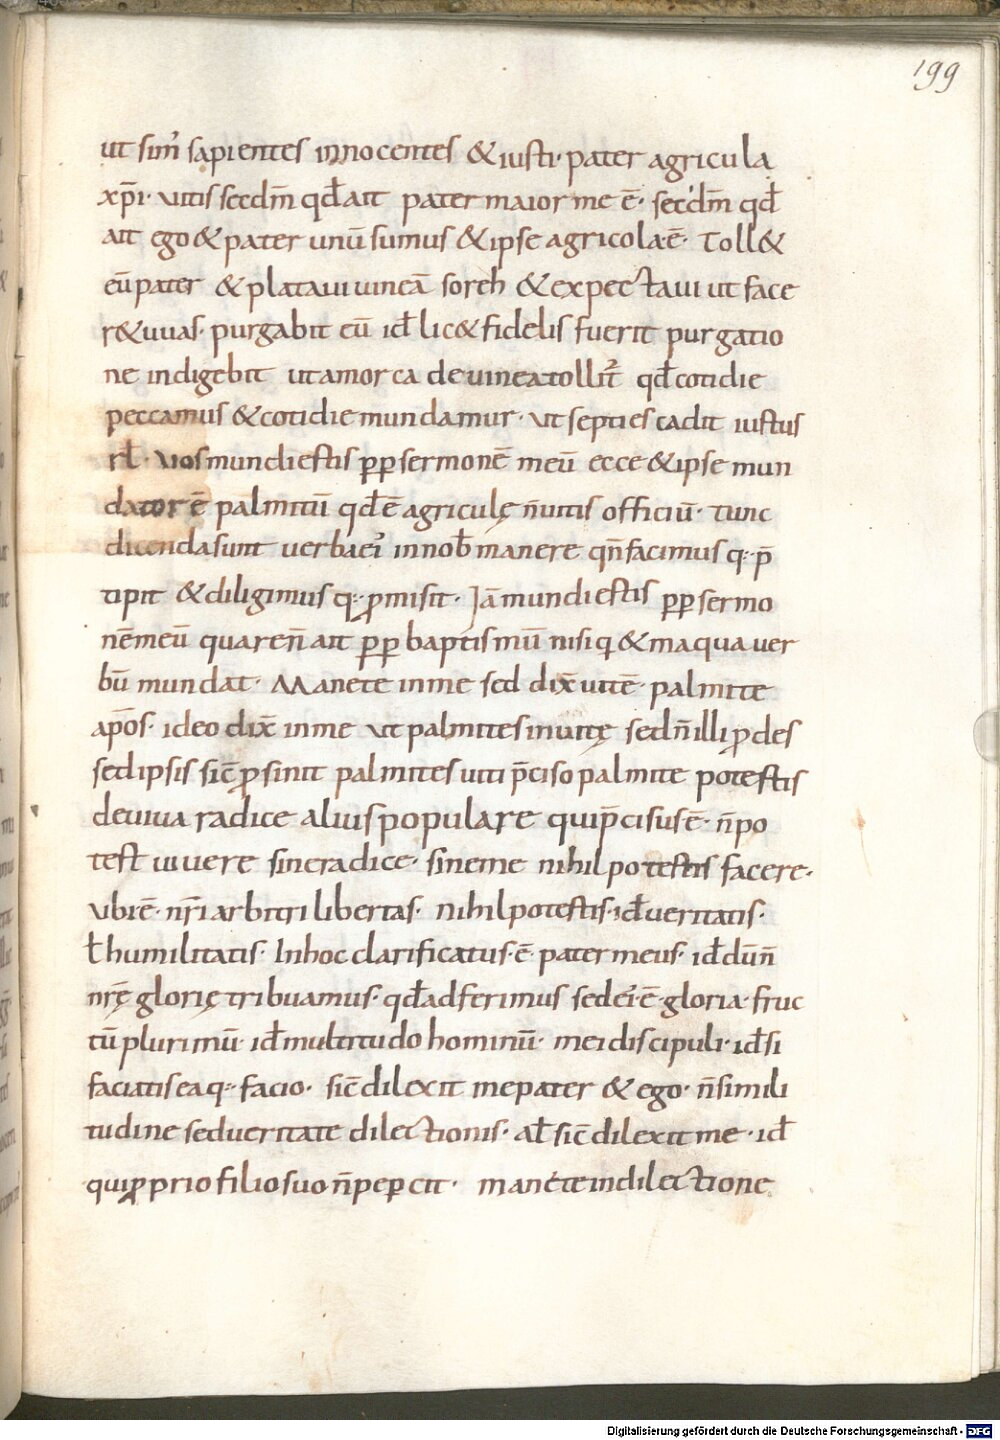 199
ut sim̄ sapientes innocentes & iusti· pater agricula
xp̄i· uitis secdm̄ qđ ait pater maior me ē· secdm̄ qđ
ait ego & pater unū sumus & ipse agricola ē· Toll&
eū pater & plataui uineā soreh & expectaui ut face
r& uuas· purgabit eū iđ lic& fidelis fuerit purgatio
ne indigebit ut amorca de uinea tollit̄ qđ cotidie
peccamus & cotidie mundamur· ut septies cadit iustus
rł· uos mundi estis pp sermonē meū ecce & ipse mun
dator ē palmitū qđ ē agriculę n̄ uitis officiū· tunc
dicenda sunt uerba ei᾽ in nob̄ manere qn̄ facimus q· p̄
cipit & diligimus q· ꝓmisit· Jā mundi estis pp sermo
nē meū quare n̄ ait pp baptismū nisi q & in aqua uer
bū mundat· Manete in me sed dix̄ uite· palmite
apos̄· ideo dix̄ in me ut palmites in uitę sed n̄ illi ꝓdes
sed ipsis sic̄ ꝓsint palmites uiti p̄ciso palmite potest is
de uiua radice alius populare qui p̄cisus ē· n̄ po
test uiuere sine radice· sine me nihil potestis facere·
ubi ē· nr̄i arbitri libertas· nihil potestis· iđ ueritatis·
ł humilitatis· In hoc clarificatus· ē· pater meus· iđ dū n̄
nr̄ę glorię tribuamus· qđ adferimus sed ei᾽· ē· gloria· fruc
tū plurimū· iđ multitudo hominū· mei discipuli· iđ si
faciatis ea q· facio· sic̄ dilexit me pater & ego· n̄ simili
tudine sed ueritate dilectionis· Ał sic̄ dilexit me· iđ
qui ꝓprio filio suo n̄ pepcit· manéte in dilectione
Digitalisierung gefördert durch die Deutsche Forschungsgemeinschaft - DFG